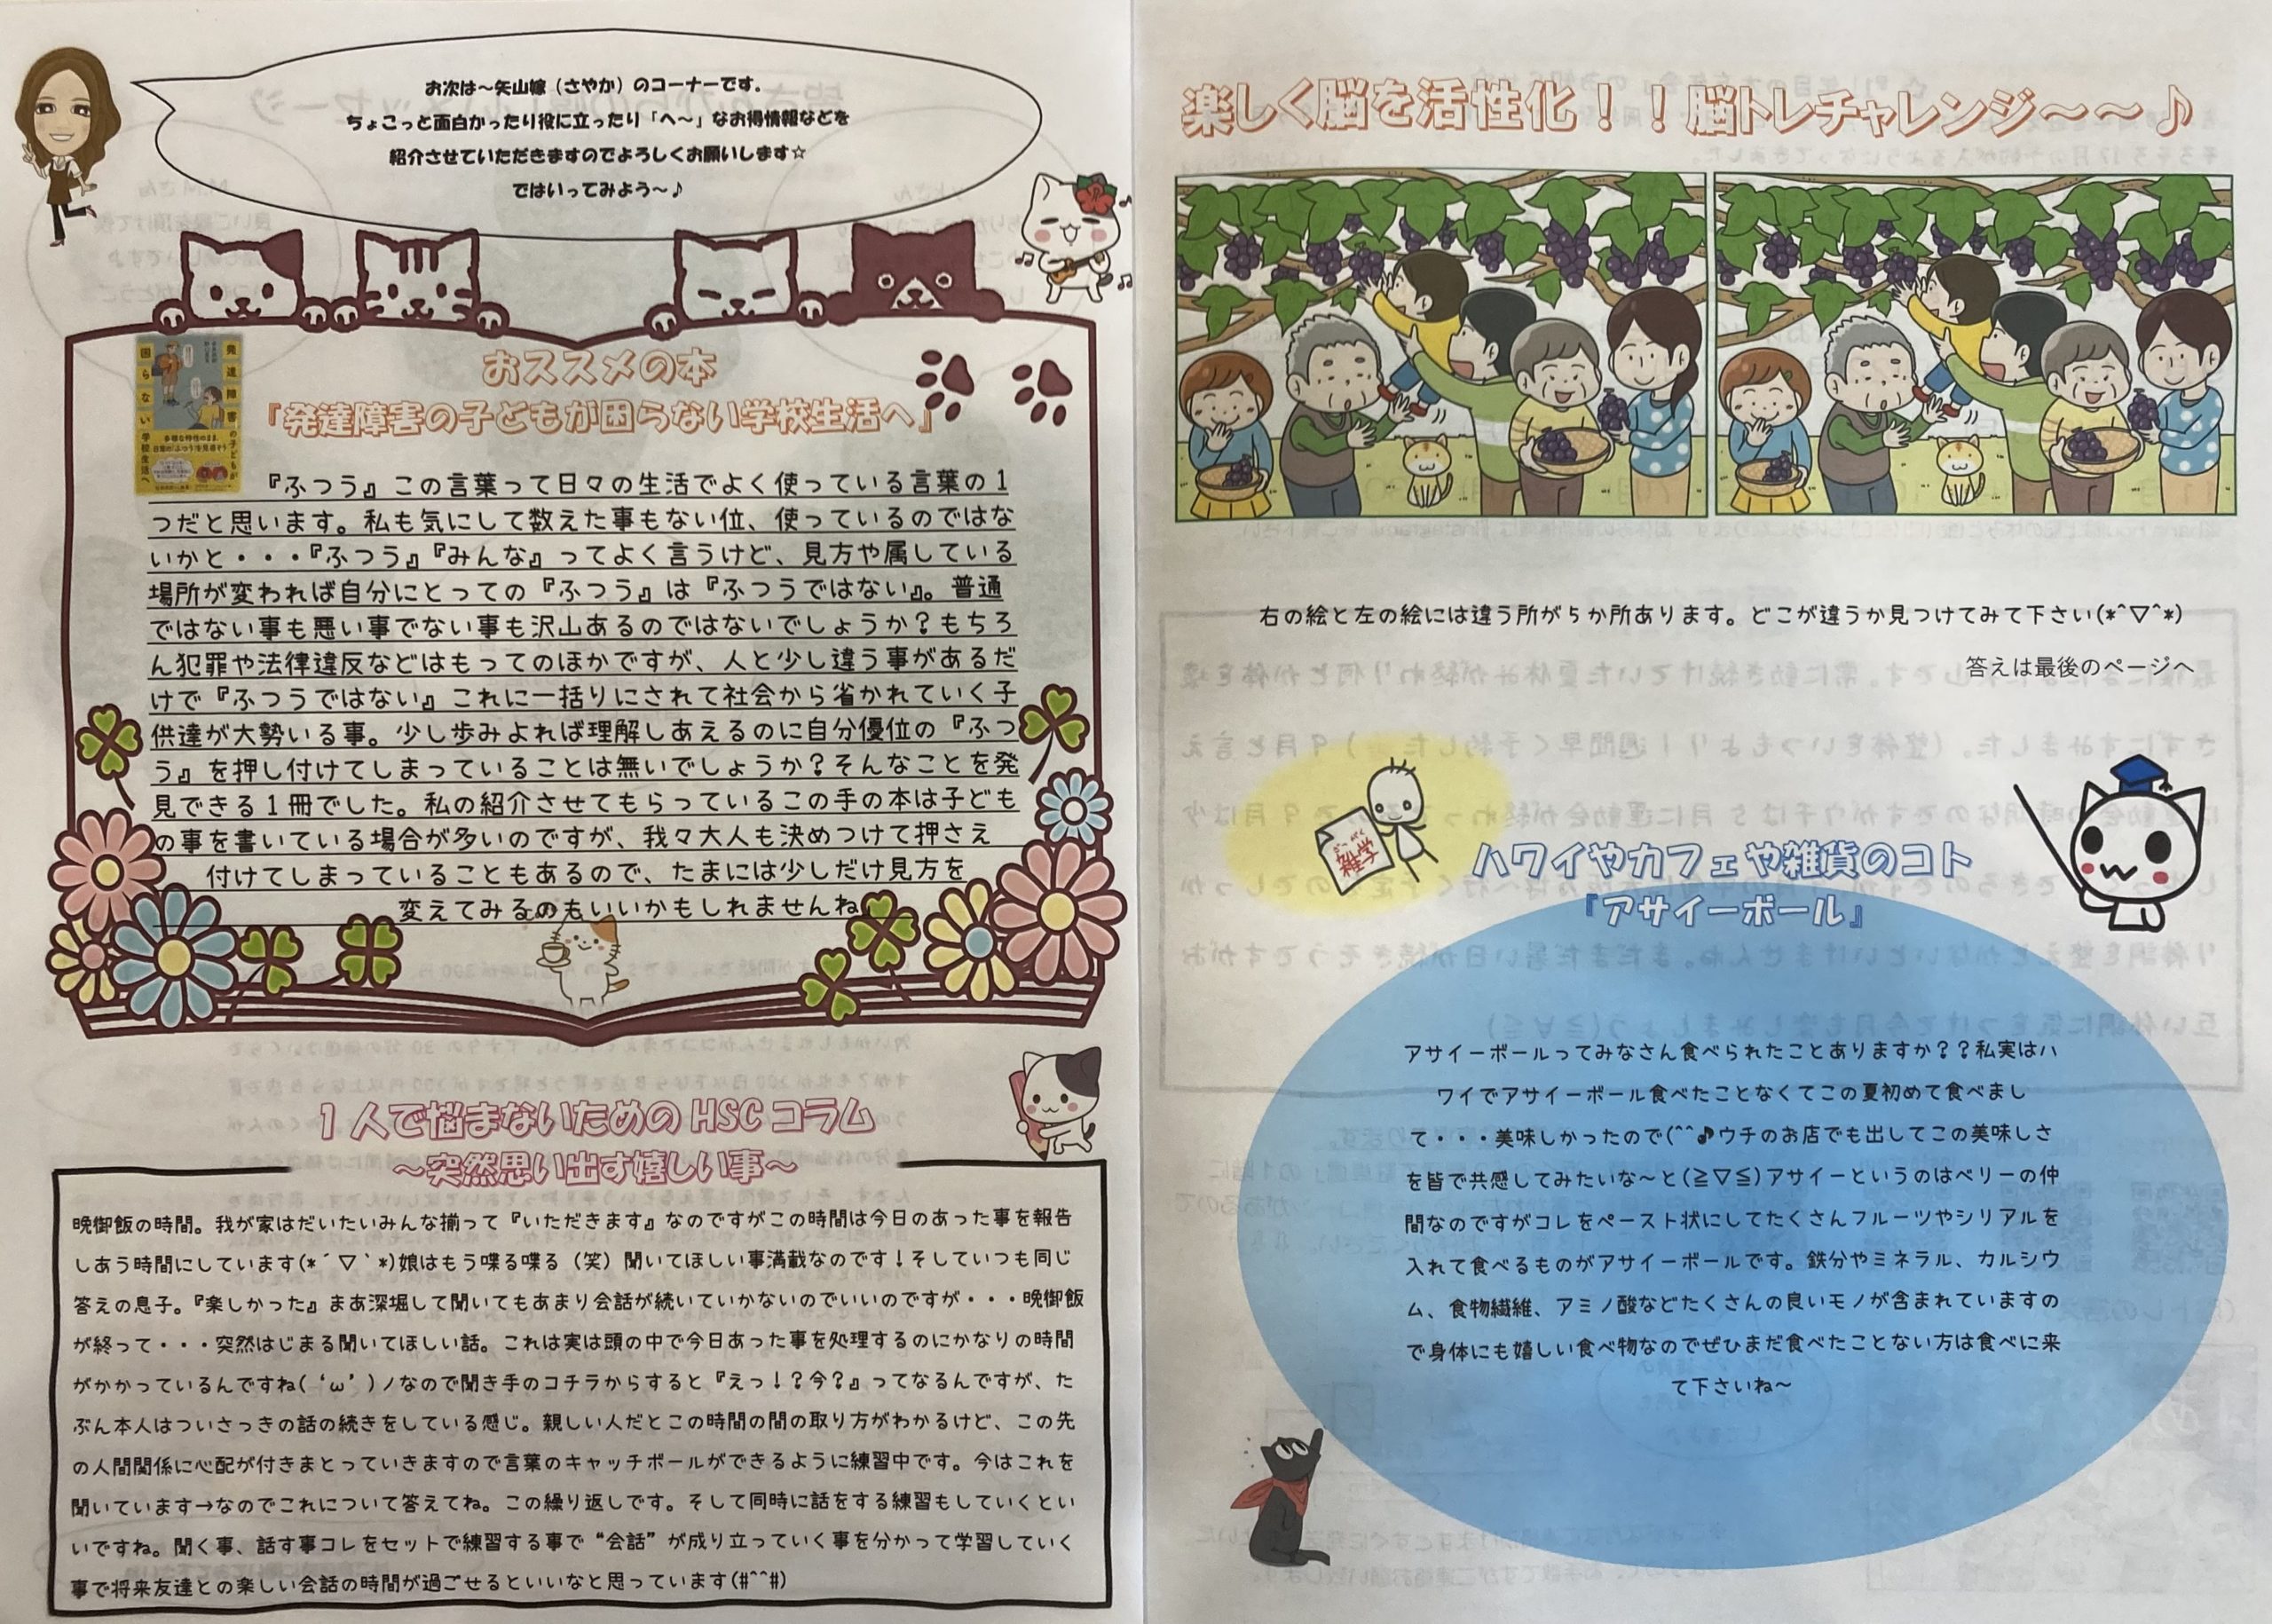 お次は～矢山嫁（さやか）のコーナーです．
ちょこっと面白かったり役に立ったり「へ～」なお得情報などを
紹介させていただきますのでよろしくお願いします☆
ではいってみよう～♪
おススメの本
『発達障害の子どもが困らない学校生活へ』
『ふつう』この言葉って日々の生活でよく使っている言葉の１
つだと思います。私も気にして数えた事もない位、使っているのではな
いかと・・・『ふつう』『みんな』ってよく言うけど、見方や属している
場所が変われば自分にとっての『ふつう』は『ふつうではない』。普通
ではない事も悪い事でない事も沢山あるのではないでしょうか？もちろ
ん犯罪や法律違反などはもってのほかですが、人と少し違う事があるだ
けで『ふつうではない』これに一括りにされて社会から省かれていく子
供達が大勢いる事。少し歩みよれば理解しあえるのに自分優位の『ふつ
う』を押し付けてしまっていることは無いでしょうか？そんなことを発
見できる１冊でした。私の紹介させてもらっているこの手の本は子ども
の事を書いている場合が多いのですが、我々大人も決めつけて押さえ
付けてしまっていることもあるので、たまには少しだけ見方を
変えてみるのもいいかもしれませんね
１人で悩まないための HSC コラム
～突然思い出す嬉しい事～
晩御飯の時間。我が家はだいたいみんな揃って『いただきます』なのですがこの時間は今日のあった事を報告
しあう時間にしています(*´▽｀*)娘はもう喋る喋る（笑）聞いてほしい事満載なのです！そしていつも同じ
答えの息子。『楽しかった』まあ深堀して聞いてもあまり会話が続いていかないのでいいのですが・・・晩御飯
が終って・・・突然はじまる聞いてほしい話。これは実は頭の中で今日あった事を処理するのにかなりの時間
がかかっているんですね( ‘ω’ )ノなので聞き手のコチラからすると『えっ！？今？』ってなるんですが、た
ぶん本人はついさっきの話の続きをしている感じ。親しい人だとこの時間の間の取り方がわかるけど、この先
の人間関係に心配が付きまとっていきますので言葉のキャッチボールができるように練習中です。今はこれを
聞いています→なのでこれについて答えてね。この繰り返しです。そして同時に話をする練習もしていくとい
いですね。聞く事、話す事コレをセットで練習する事で“会話”が成り立っていく事を分かって学習していく
事で将来友達との楽しい会話の時間が過ごせるといいなと思っています(#^^#)
楽しく脳を活性化！！脳トレチャレンジ～～♪
右の絵と左の絵には違う所が５か所あります。どこが違うか見つけてみて下さい(*^▽^*)
答えは最後のページへ
雑学
ハワイやカフェや雑貨のコト
『アサイーボール』
アサイーボールってみなさん食べられたことありますか？？私実はハ
ワイでアサイーボール食べたことなくてこの夏初めて食べまし
て・・・美味しかったので(^^♪ウチのお店でも出してこの美味しさ
を皆で共感してみたいな～と(≧▽≦)アサイーというのはベリーの仲
間なのですがコレをペースト状にしてたくさんフルーツやシリアルを
入れて食べるものがアサイーボールです。鉄分やミネラル、カルシウ
ム、食物繊維、アミノ酸などたくさんの良いモノが含まれていますの
で身体にも嬉しい食べ物なのでぜひまだ食べたことない方は食べに来
て下さいね～